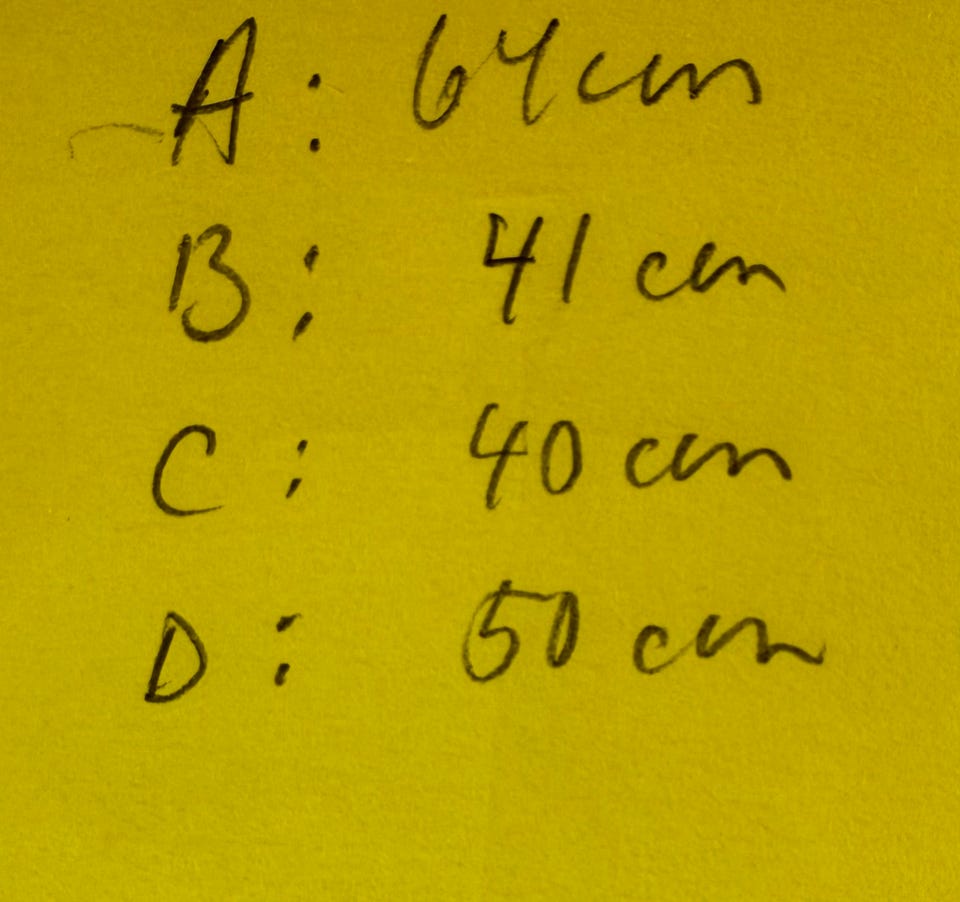 A: 64cm
B: 41 cm
C: 40 cm
D: 50 cm